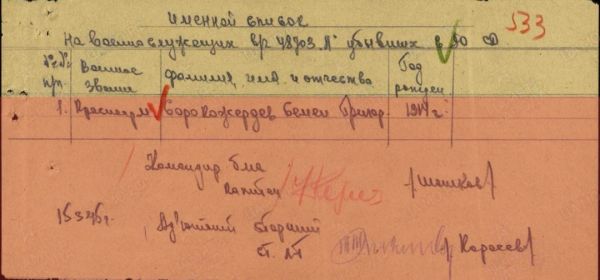 533
Именной список
На военнослужащих в/ч 48703 "А" убывших в 90 СД
№№ п/п Военное звание фамилия, имя и отчество Год рожден
1. Красноарм Сорокожердев Семен Григор 1914 г.
Командир б-на
капитан /Шашков/
15.3.45г. Ад'ютант старший
ст. л-т /Карасев/